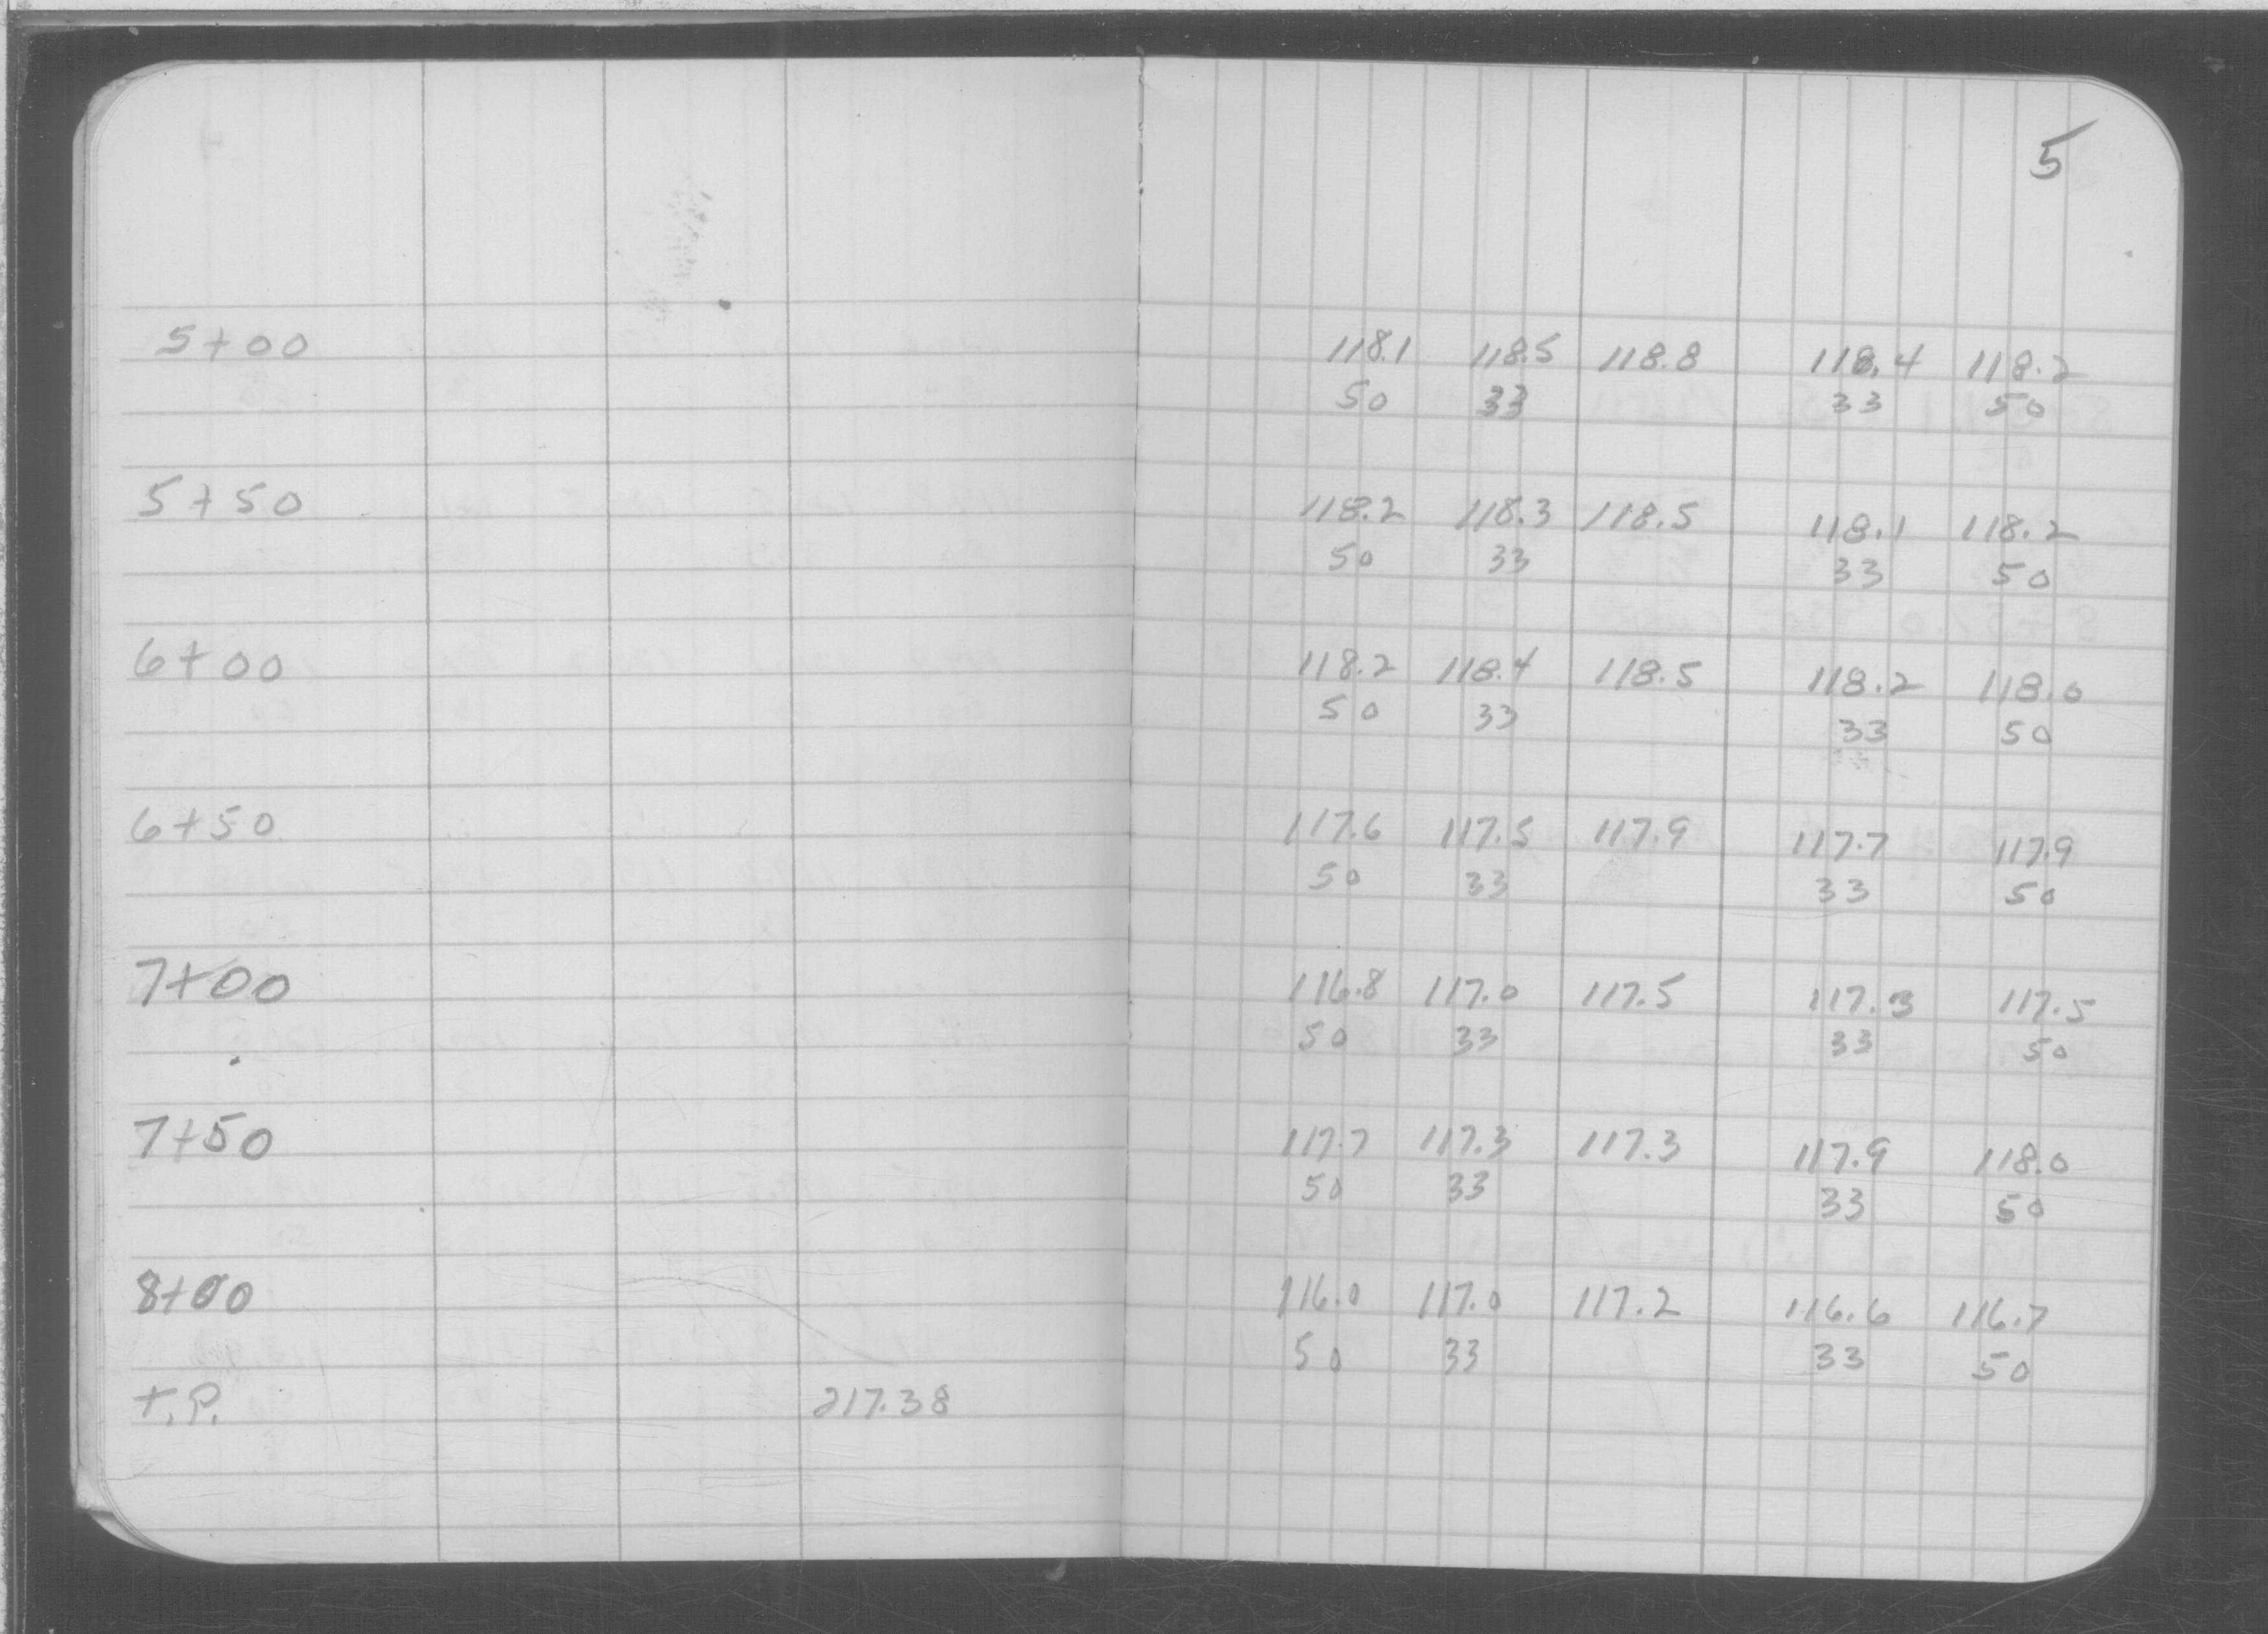 5
5+00 118.1 118.5 118.8 118.4 118.2
50 33 33 50
5+50 118.2 118.3 118.5 118.1 118.2
50 33 33 50
6+00 118.2 118.4 118.5 118.2 118.0
50 33 33 50
6+50 117.6 117.5 117.9 117.7 117.9
50 33 33 50
7+00 116.8 117.0 117.5 117.3 117.5
50 33 33 50
7+50 117.7 117.3 117.3 117.9 118.0
50 33 33 50
8+00 116.0 117.0 117.2 116.6 116.7
50 33 33 50
T.P. 217.38